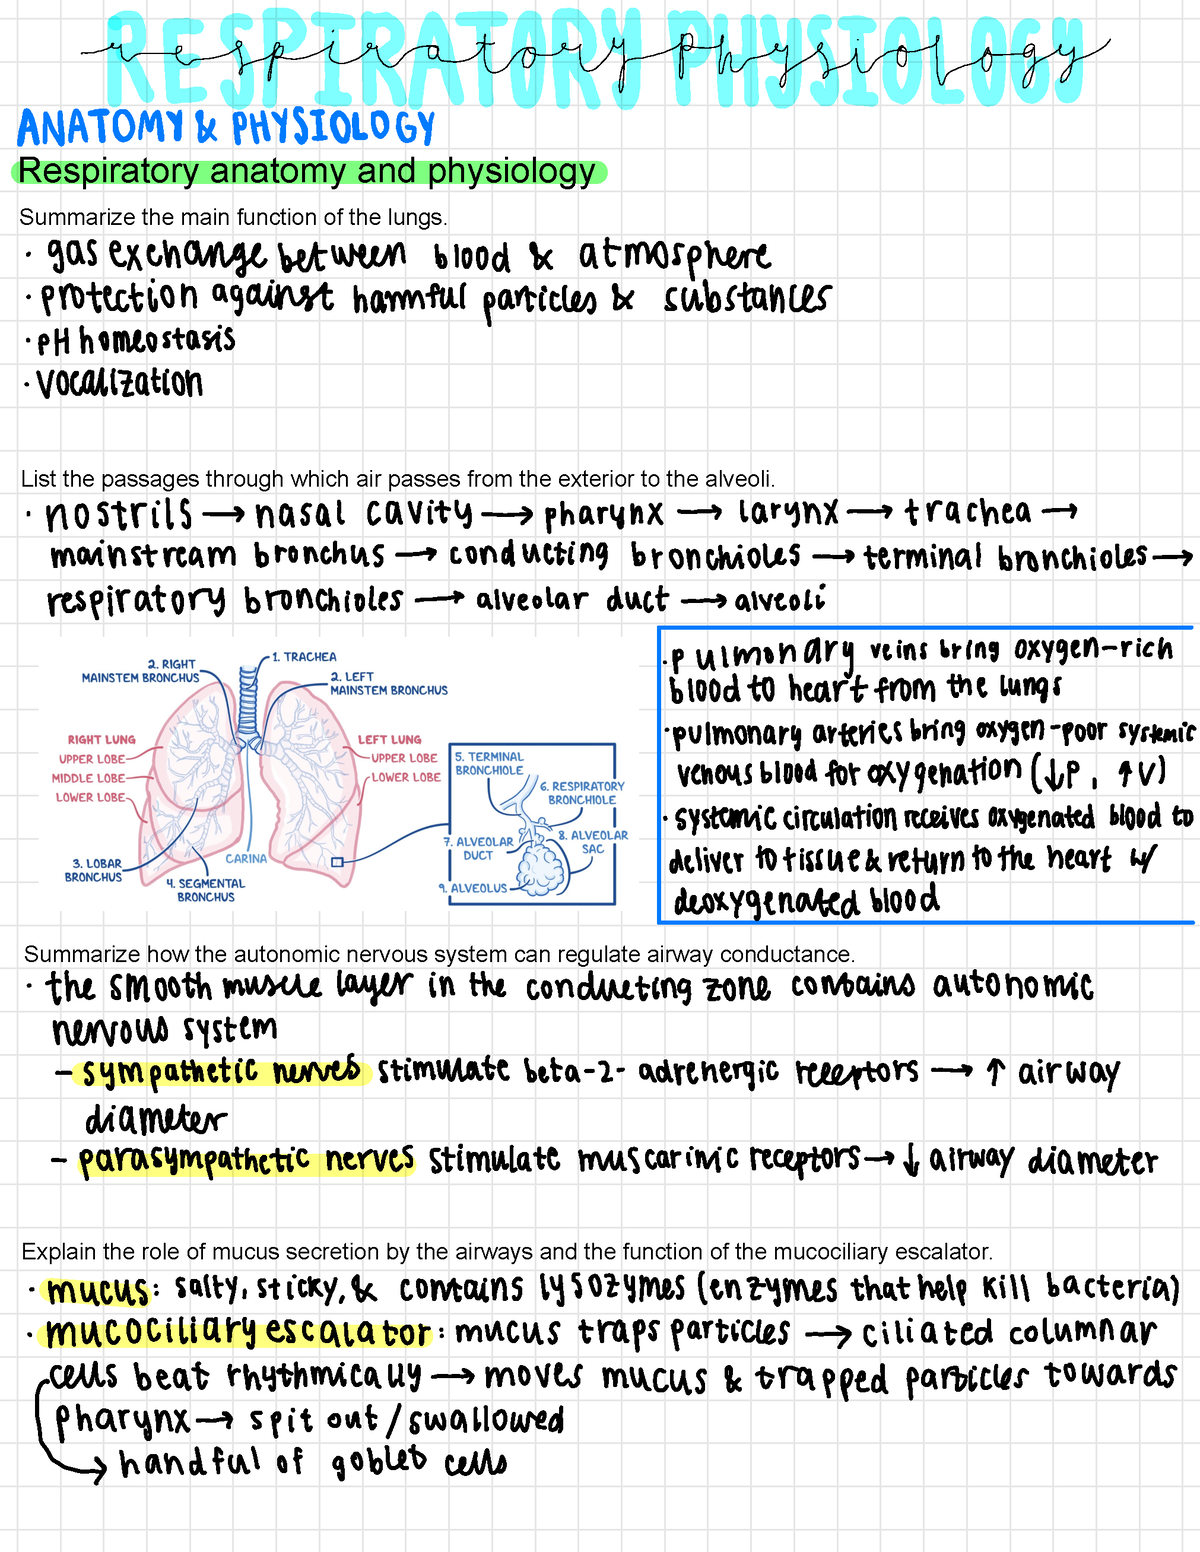 RESPIRATORY PHYSIOLOGY
respiratory physiology
ANATOMY & PHYSIOLOGY
Respiratory anatomy and physiology
Summarize the main function of the lungs.
· gas exchange between blood & atmosphere
· protection against harmful particles & substances
· pH homeostasis
· vocalization
List the passages through which air passes from the exterior to the alveoli.
· nostrils → nasal cavity → pharynx → larynx → trachea →
mainstream bronchus → conducting bronchioles → terminal bronchioles →
respiratory bronchioles → alveolar duct → alveoli
1. TRACHEA
2. RIGHT
MAINSTEM BRONCHUS
2. LEFT
MAINSTEM BRONCHUS
RIGHT LUNG
UPPER LOBE
MIDDLE LOBE
LOWER LOBE
LEFT LUNG
UPPER LOBE
LOWER LOBE
3. LOBAR
BRONCHUS
4. SEGMENTAL
BRONCHUS
CARINA
5. TERMINAL
BRONCHIOLE
6. RESPIRATORY
BRONCHIOLE
7. ALVEOLAR
DUCT
8. ALVEOLAR
SAC
9. ALVEOLUS
· pulmonary veins bring oxygen-rich
blood to heart from the lungs
· pulmonary arteries bring oxygen-poor systemic
venous blood for oxygenation (↓P, ↑V)
· systemic circulation receives oxygenated blood to
deliver to tissue & return to the heart w/
deoxygenated blood
Summarize how the autonomic nervous system can regulate airway conductance.
· the smooth muscle layer in the conducting zone contains autonomic
nervous system
- sympathetic nerves stimulate beta-2- adrenergic receptors → ↑ airway
diameter
- parasympathetic nerves stimulate muscarinic receptors → ↓ airway diameter
Explain the role of mucus secretion by the airways and the function of the mucociliary escalator.
· mucus: salty, sticky, & contains lysozymes (enzymes that help kill bacteria)
· mucociliary escalator: mucus traps particles → ciliated columnar
cells beat rhythmically → moves mucus & trapped particles towards
pharynx → spit out / swallowed
→ handful of goblet cells